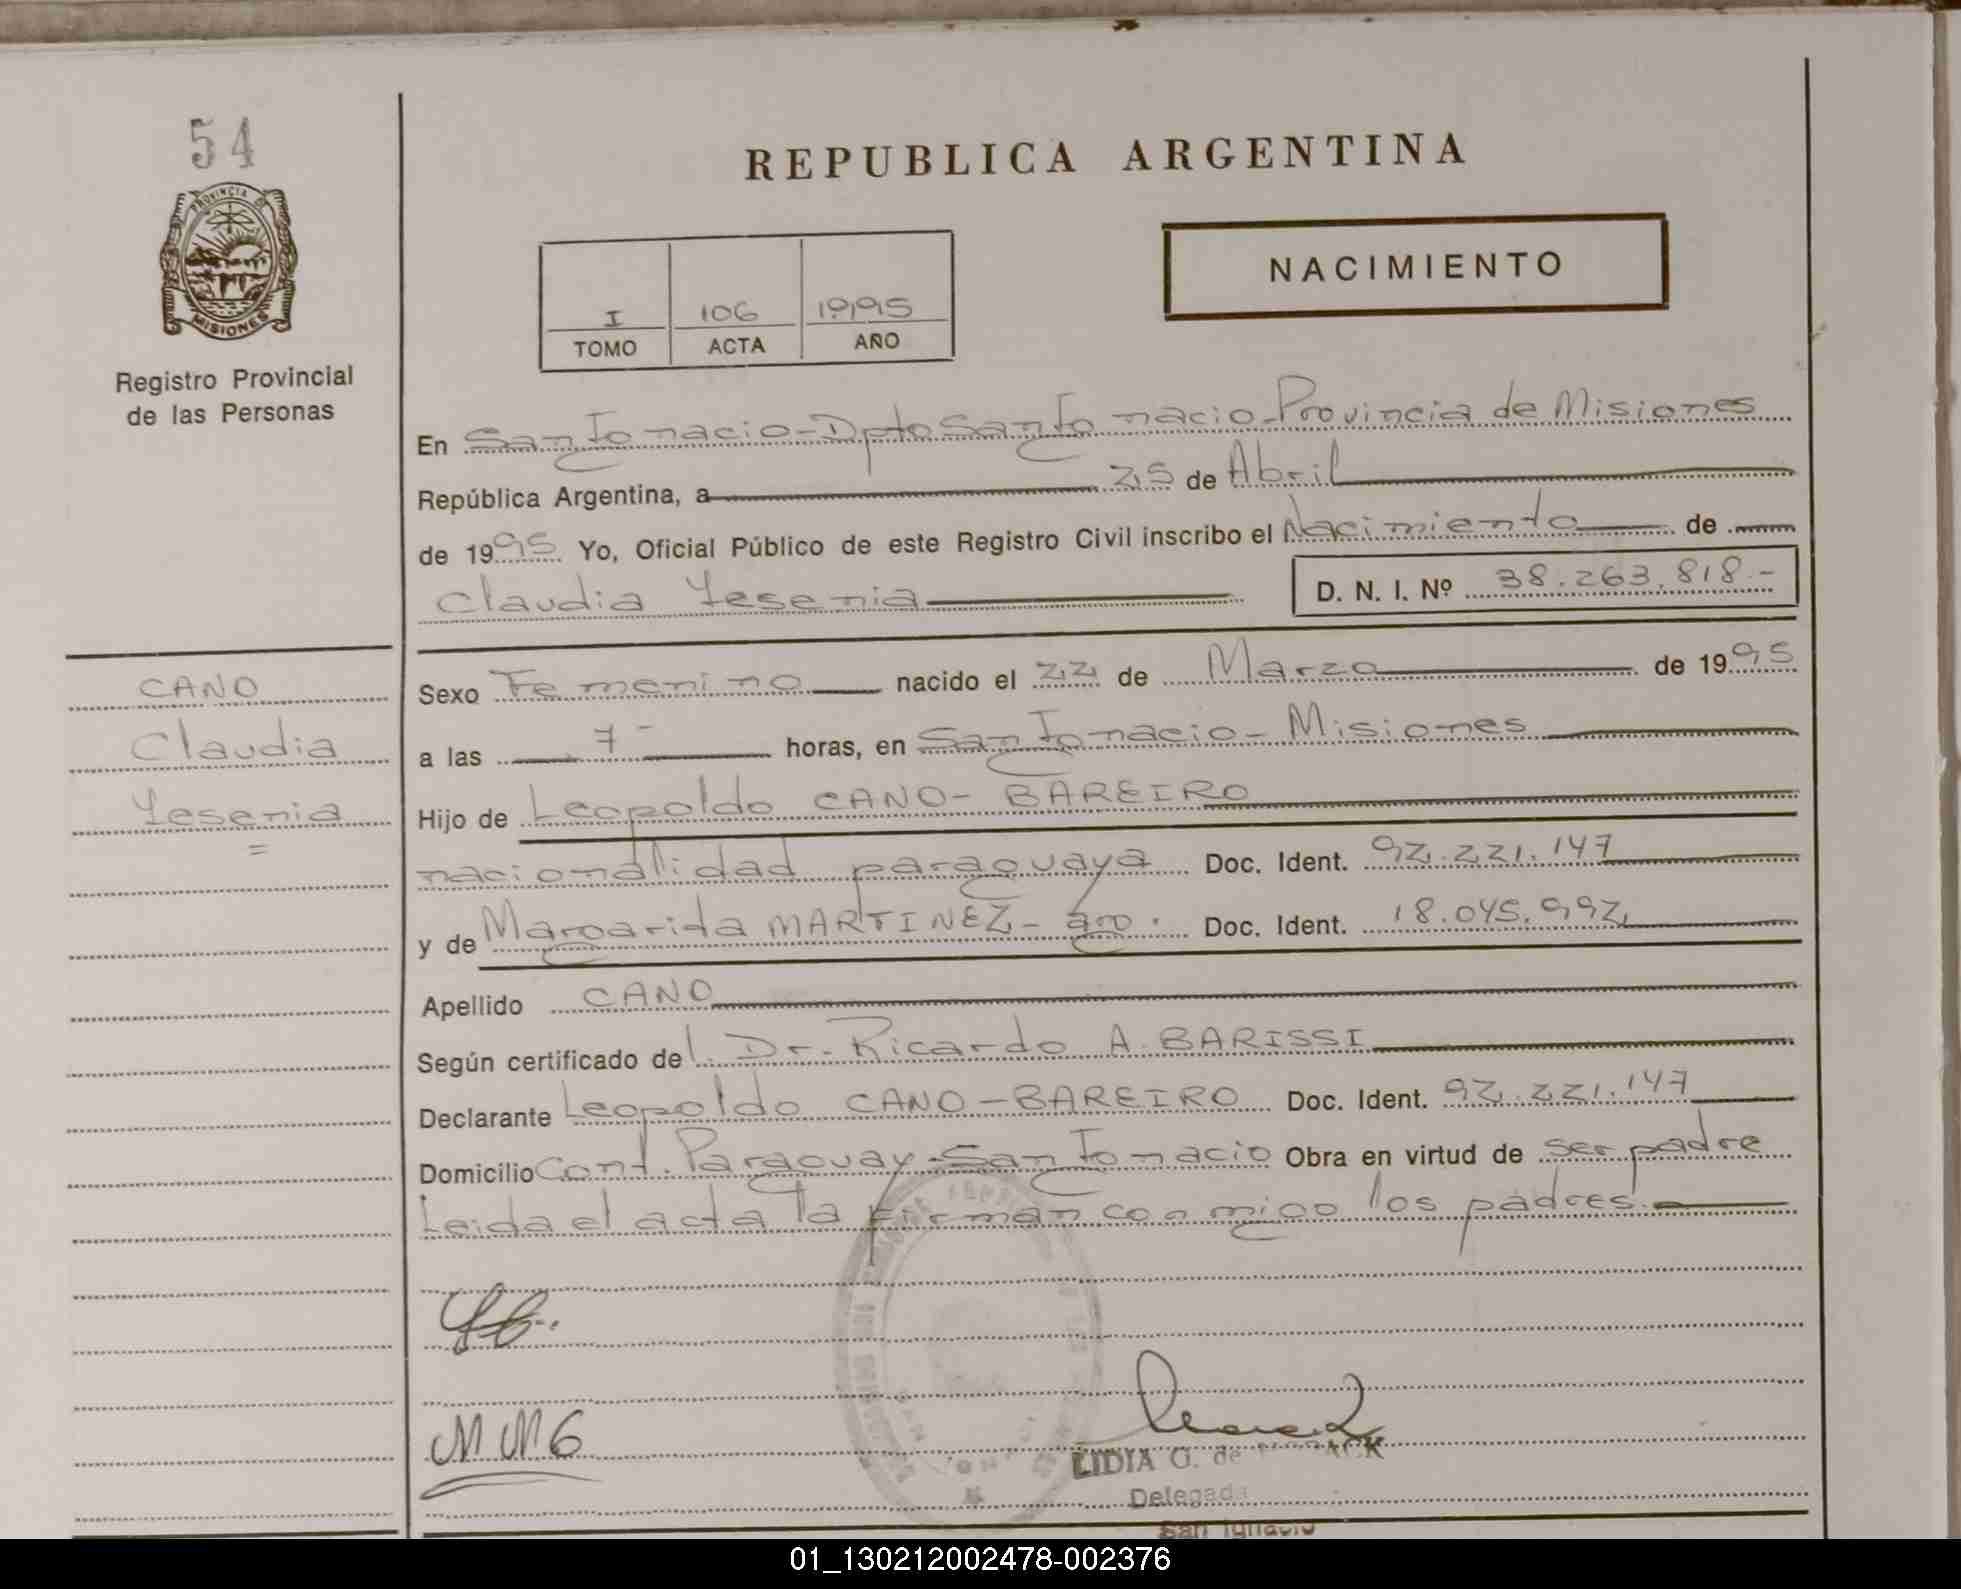 54
PROVINCIA DE
MISIONES
Registro Provincial
de las Personas
REPUBLICA ARGENTINA
NACIMIENTO
I 106 1995
TOMO ACTA AÑO
En San Ignacio - Dpto San Ignacio - Provincia de Misiones
República Argentina, a 25 de Abril
de 1995 Yo, Oficial Público de este Registro Civil inscribo el Nacimiento de
Claudia Yesenia D. N. I. Nº 38.263.818.-
CANO
Claudia
Yesenia
=
Sexo Femenino nacido el 22 de Marzo de 1995
a las 7- horas, en San Ignacio - Misiones
Hijo de Leopoldo CANO - BAREIRO
nacionalidad paraguaya Doc. Ident. 92.221.147
y de Margarida MARTINEZ - arg. Doc. Ident. 18.045.992
Apellido CANO
Según certificado del Dr. Ricardo A. BARISSI
Declarante Leopoldo CANO - BAREIRO Doc. Ident. 92.221.147
Domicilio Cont. Paraguay - San Ignacio Obra en virtud de ser padre
Leida el acta la firman conmigo los padres.
LIDIA G. de
Delegada
San Ignacio
01_130212002478-002376